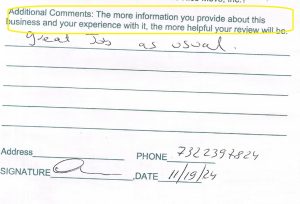 Additional Comments: The more information you provide about this
business and your experience with it, the more helpful your review will be.
great Job as usual.
Address PHONE 7322397824
SIGNATURE DATE 11/19/24